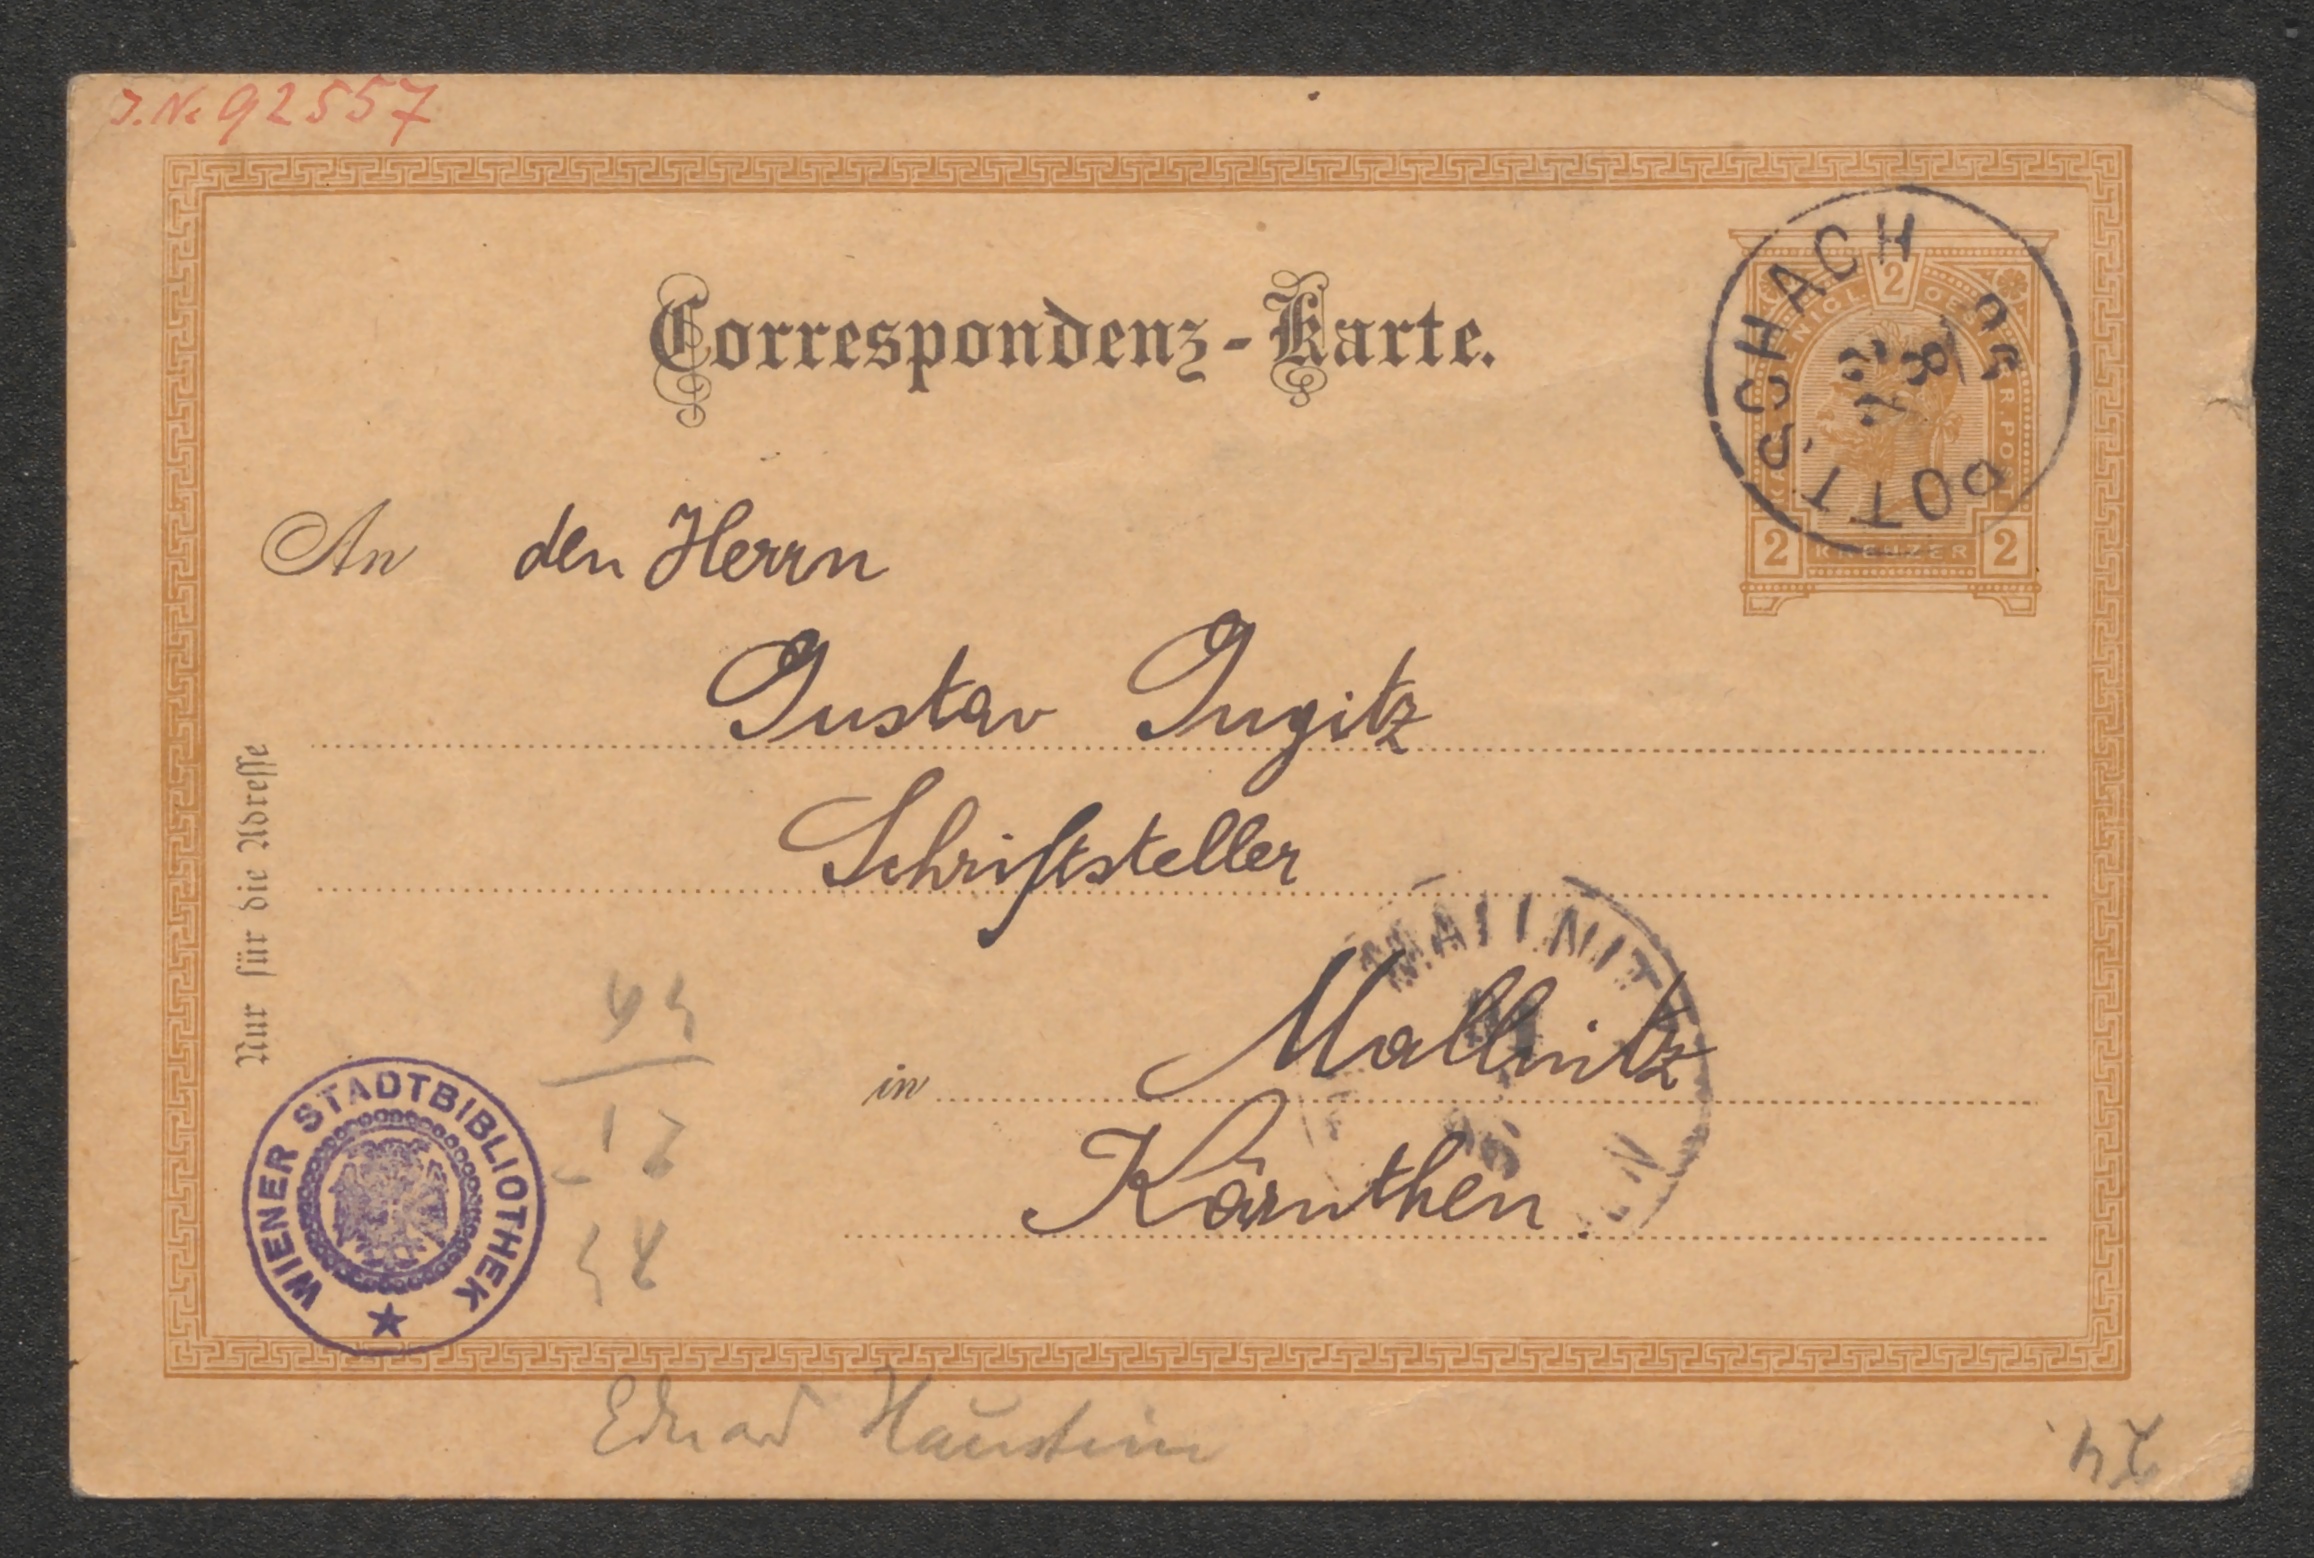 J.N. 92557
Correspondenz-Karte.
2
KAIS. KÖNIGL. OESTERR. POST
POTTSCHACH
22
8
95
2 KREUZER 2
An den Herrn
Gustav Gugitz
Schriftsteller
in Mallnitz
Kärnthen
MALLNITZ
Nur für die Adresse
WIENER STADTBIBLIOTHEK
Eduard Haustein